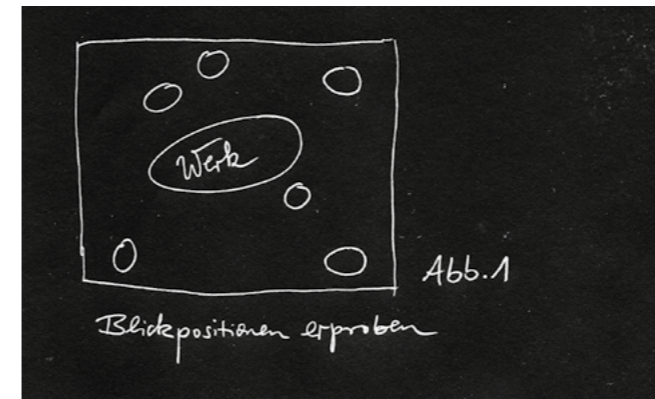 Werk
Abb.1
Blickpositionen erproben